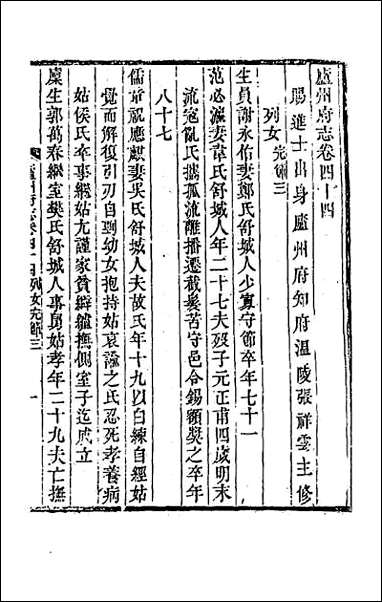 廬州府志卷四十四
賜進士出身廬州府知府溫陵張祥雲主修
列女完節三
生員謝永佑妻鄭氏舒城人少寡守節卒年七十一
范必濂妻韋氏舒城人年二十七夫歿子元正甫四歲明末
流寇亂氏攜孤流離播遷截髮苦守邑令錫額獎之卒年
八十七
儒童祝應麒妻吳氏舒城人夫故氏年十九以白練自經姑
覺而解復引刃自剄幼女抱持姑哀諭之氏忍死孝養病
姑侯氏卒事繼姑尤謹家貧辟纑撫側室子迄成立
廩生郭萬春繼室樊氏舒城人事舅姑孝年二十九夫亡撫
廬州府志卷四十四列女完節三
一